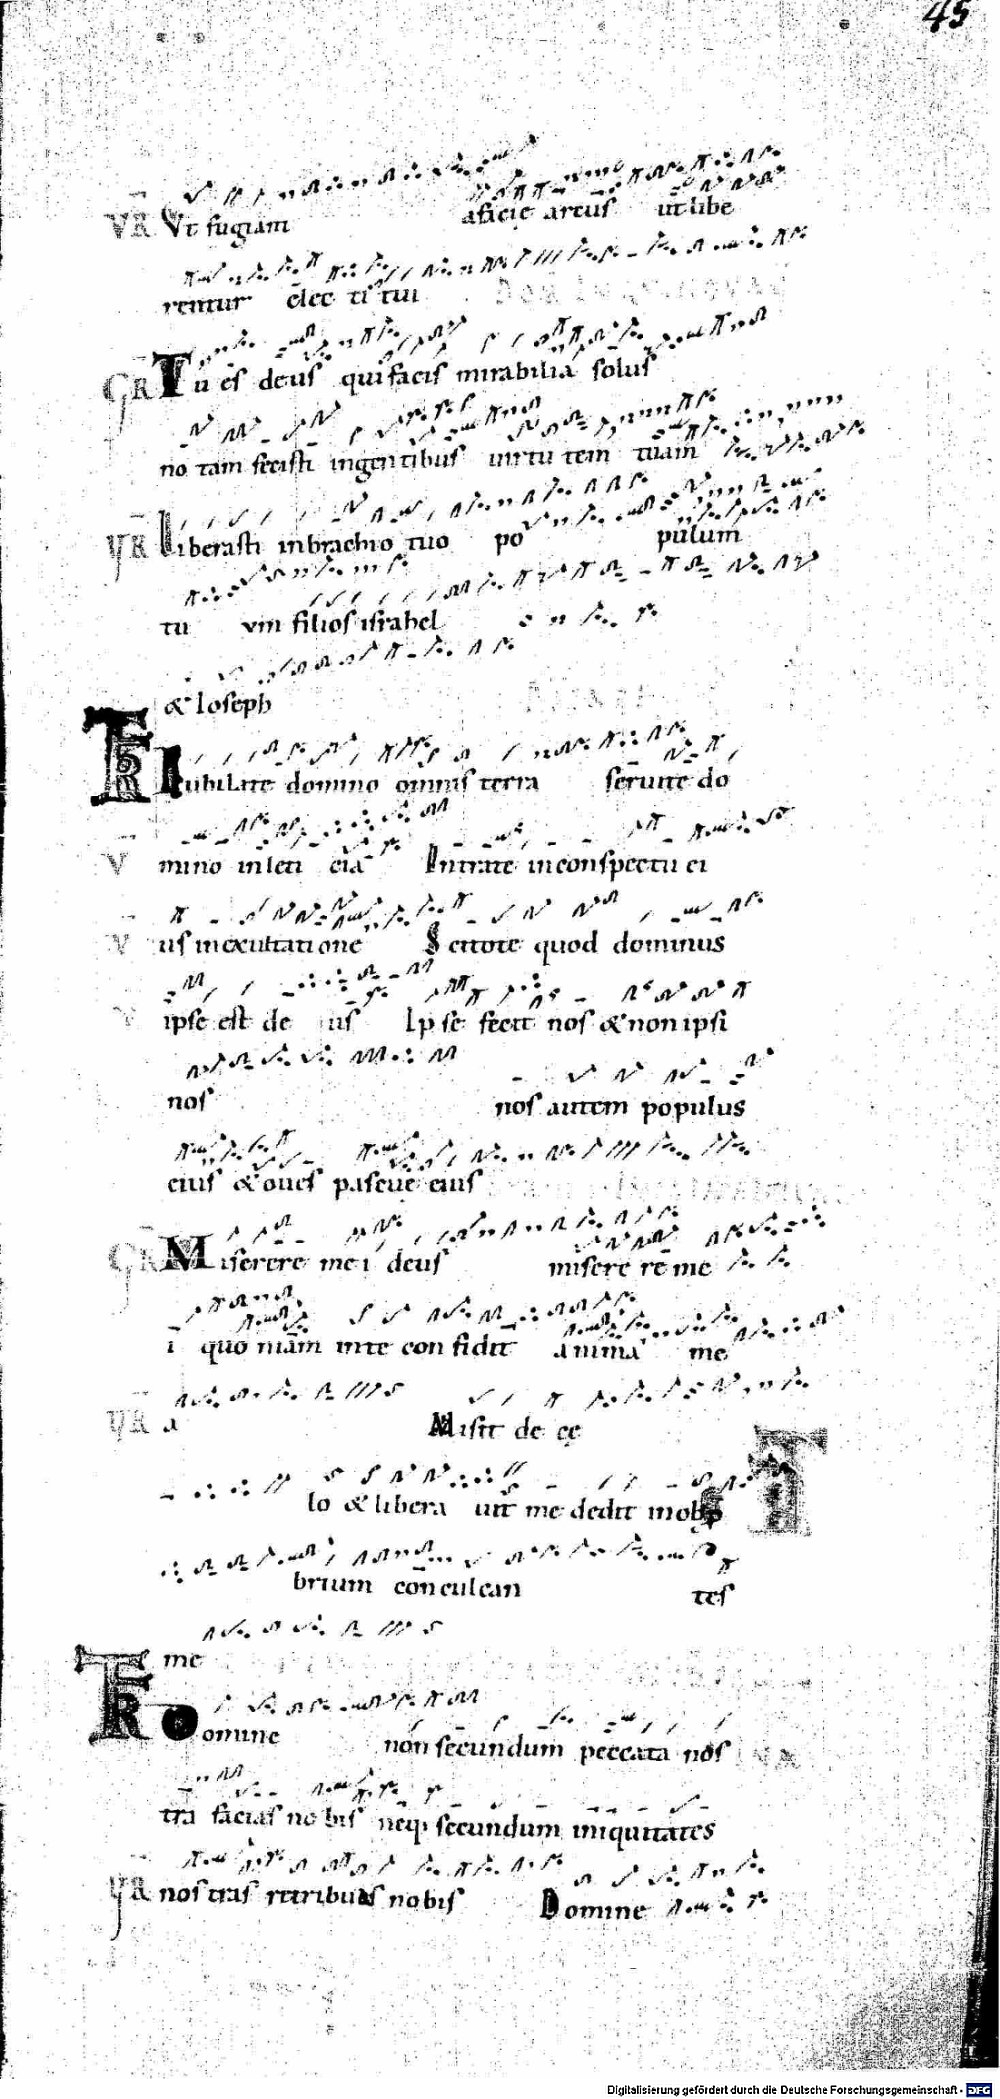 45
VR Ut fugiam afacie arcus ut libe
rentur elec ti tui
GR Tu es deus qui facis mirabilia solus
no tam fecisti ingentibus uirtu tem tuam
VR liberasti inbrachio tuo po pulum
tu vm filios israhel
& Ioseph
TR Iubilate domino omnis terra seruite do
V mino inleti cia Intrate inconspectu ei
V us inexultatione Scitote quod dominus
V ipse est de us Ipse fecit nos & non ipsi
nos nos autem populus
eius & oues pascue eius
GR Miserere mei deus misere re me
i quo niam inte con fidit anima me
VR a Misit de cę
lo & libera uit me dedit inob p
brium conculcan tes
me
TR Domine non secundum peccata nos
tra facias no bis neq; secundum iniquitates
VR nostras retribuas nobis Domine
Digitalisierung gefördert durch die Deutsche Forschungsgemeinschaft - DFG